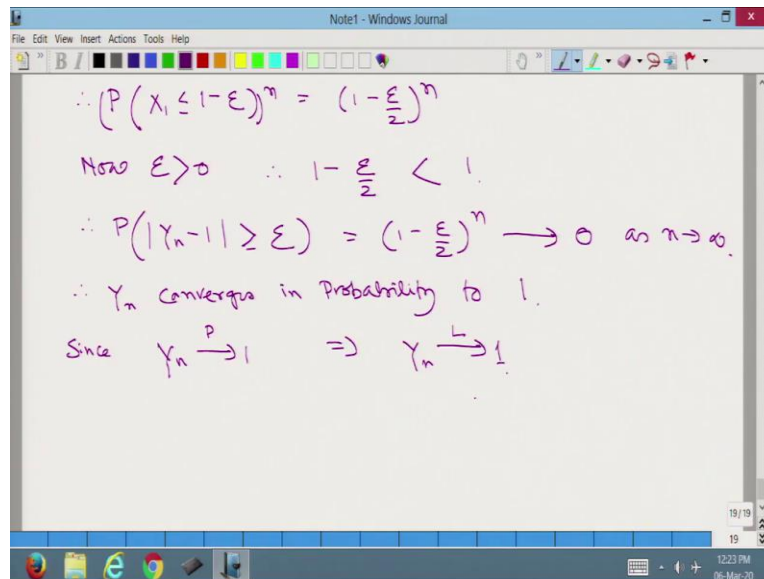 Note1 - Windows Journal
File Edit View Insert Actions Tools Help
B I
∴ (P(X₁ ≤ 1-ε))ⁿ = (1-ε/2)ⁿ
Now ε>0 ∴ 1-ε/2 < 1.
∴ P(|Yₙ-1| ≥ ε) = (1-ε/2)ⁿ → 0 as n→∞.
∴ Yₙ converges in Probability to 1.
Since Yₙ →ᴾ 1 ⇒ Yₙ →ᴸ 1.
19/19
19
12:23 PM
06-Mar-20